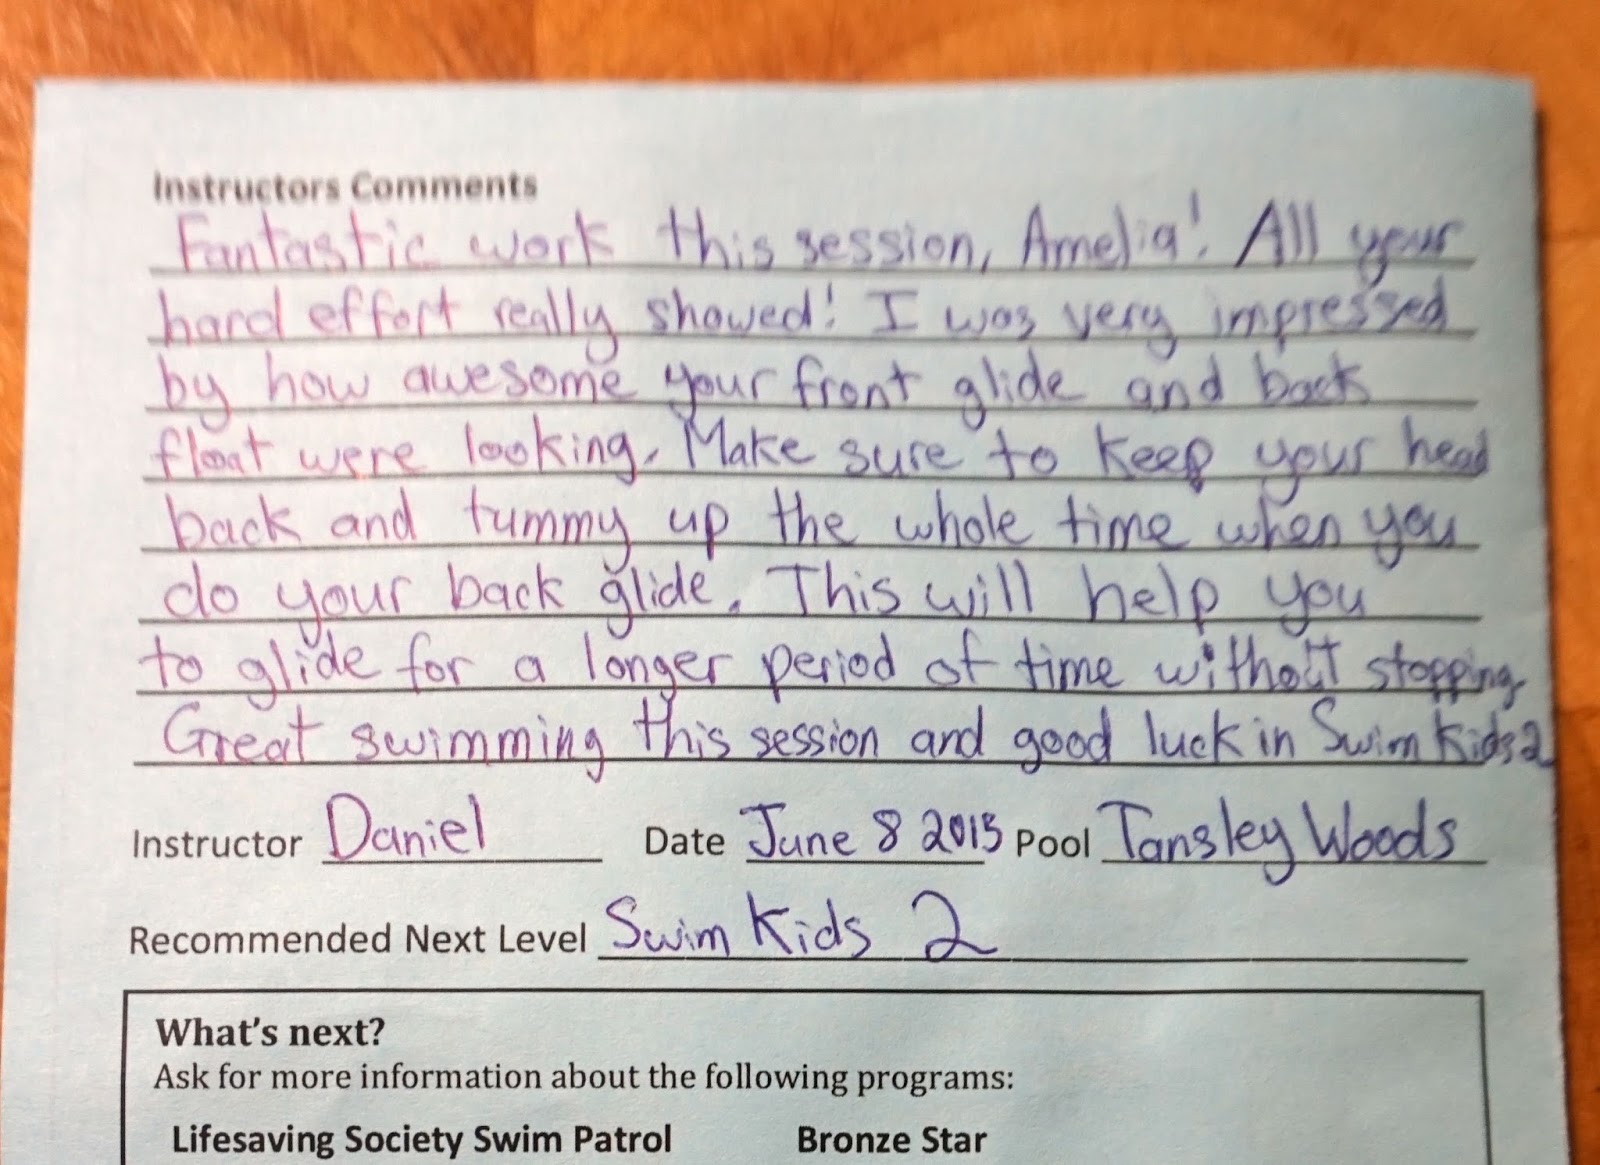 Instructors Comments
Fantastic work this session, Amelia! All your
hard effort really showed! I was very impressed
by how awesome your front glide and back
float were looking. Make sure to keep your head
back and tummy up the whole time when you
do your back glide. This will help you
to glide for a longer period of time without stopping.
Great swimming this session and good luck in Swim Kids 2
Instructor Daniel Date June 8 2015 Pool Tansley Woods
Recommended Next Level Swim Kids 2
What's next?
Ask for more information about the following programs:
Lifesaving Society Swim Patrol Bronze Star